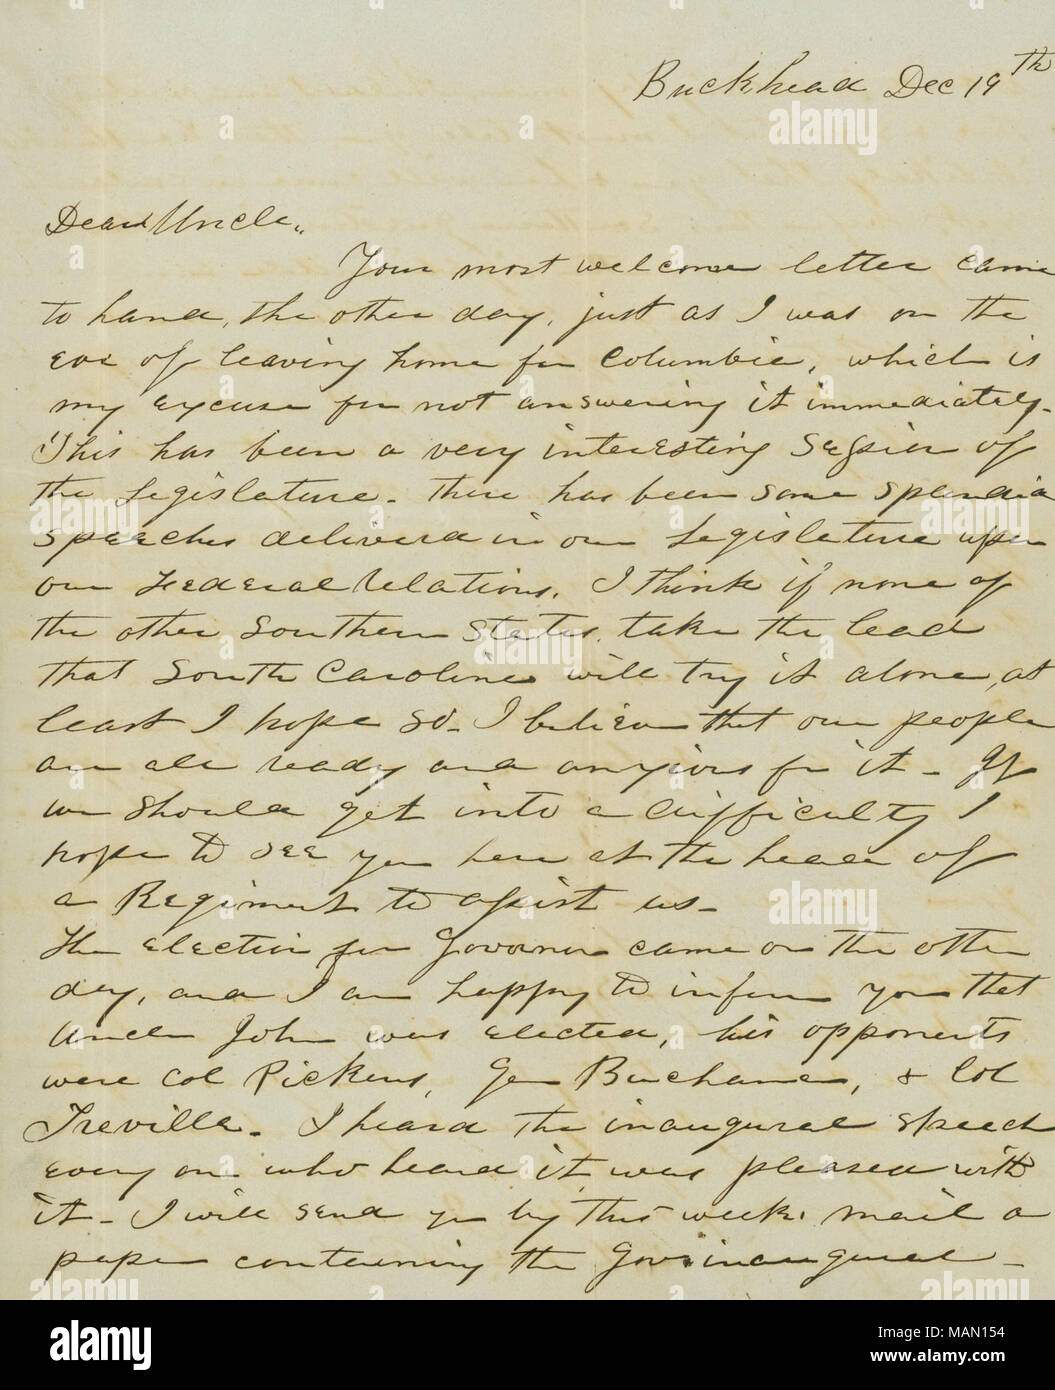 Buckhead Dec 19th
Dear Uncle,,
Your most welcome letter came
to hand, the other day, just as I was on the
eve of leaving home for Columbia, which is
my excuse for not answering it immediately.
This has been a very interesting Session of
the Legislature. There has been some splendid
speeches delivered in our Legislature upon
our Federal Relations. I think if none of
the other Southern States take the lead
that South Carolina will try it alone, at
least I hope so. I believe that our people
are all ready and anxious for it. If
we should get into a difficulty I
hope to see you here at the head of
a Regiment to assist us.
The election for Governor came on the other
day, and I am happy to inform you that
Uncle John was elected, his opponents
were Col Pickens, Gen Buchanan, & Col
Treville. I heard the inaugural speech
every one who heard it was pleased with
it. I will send you by this weeks mail a
paper containing the Gov inaugural.
alamy
a
alamy
Image ID: MAN154
www.alamy.com